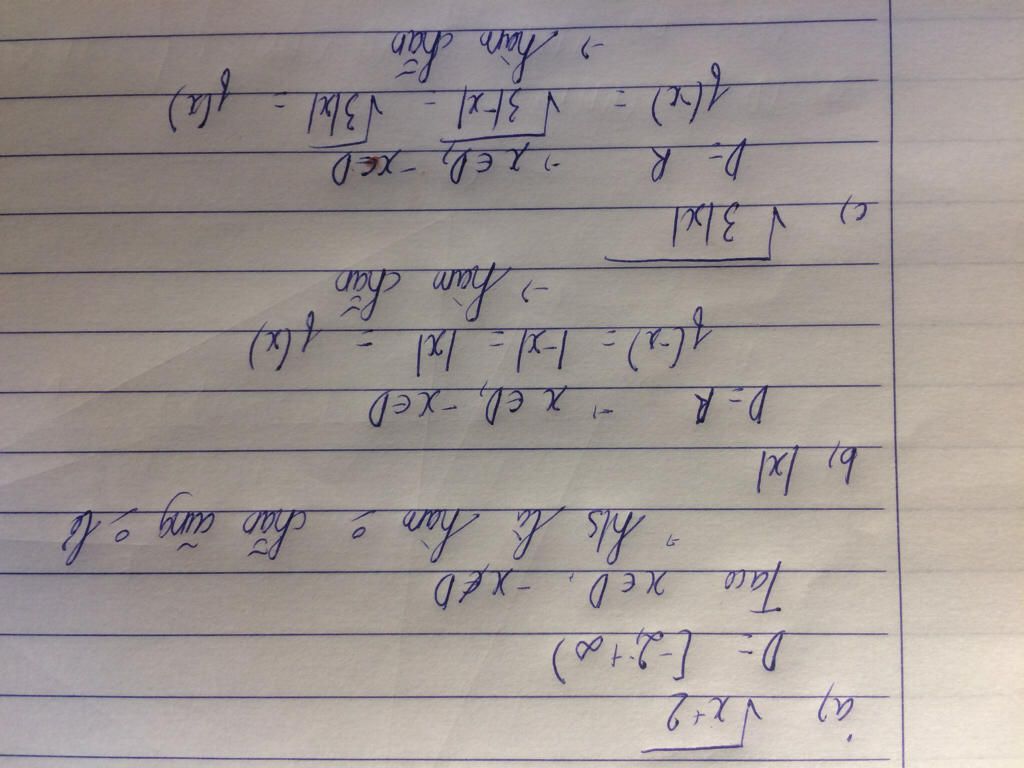 a) √x+2
D = [-2; +∞)
Ta có x∈D, -x∉D
→ h/s là hàm ko chẵn cũng ko lẻ
b) |x|
D = R → x∈D, -x∈D
f(-x) = |-x| = |x| = f(x)
→ hàm chẵn
c) √3|x|
D = R → x∈D, -x∈D
f(-x) = √3|-x| = √3|x| = f(x)
→ hàm chẵn